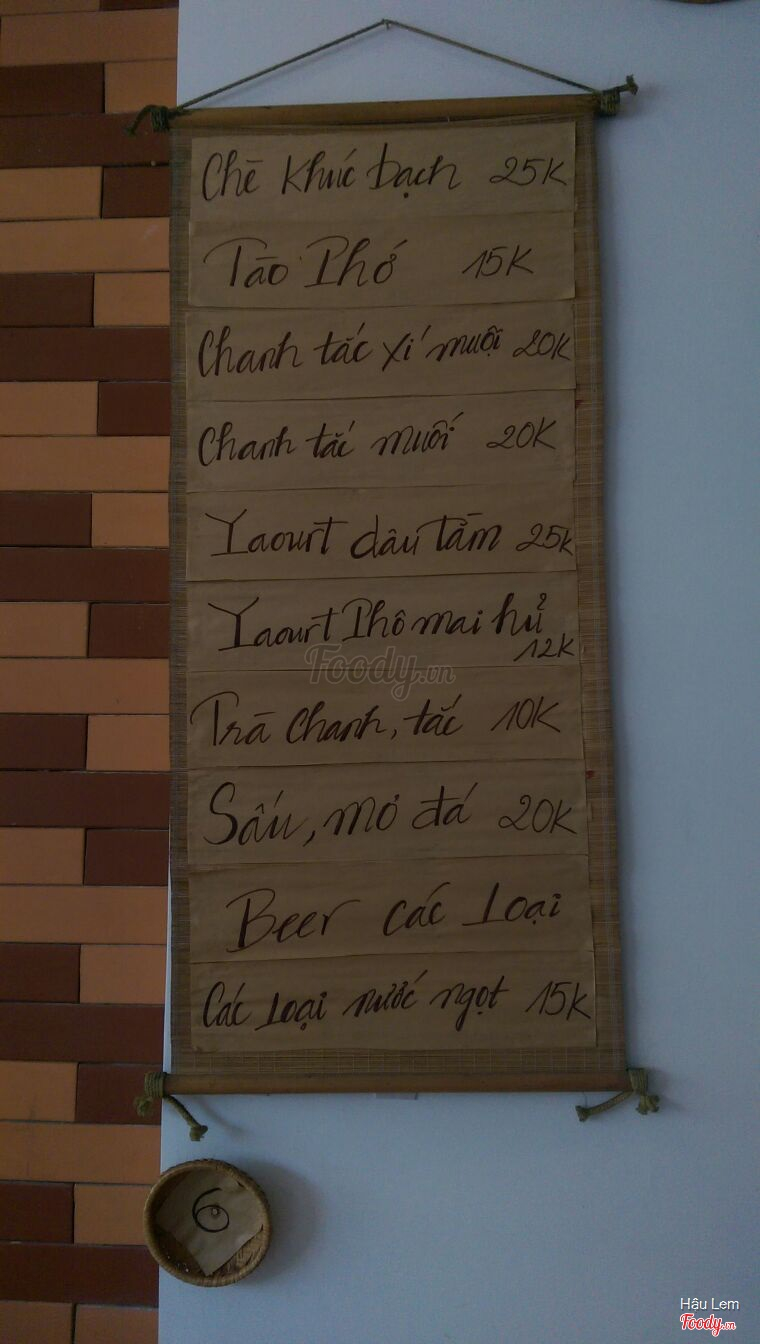 Chè khúc bạch 25K
Tào Phớ 15K
Chanh tắc xí muội 20K
Chanh tắc muối 20K
Yaourt dâu tằm 25K
Yaourt Phô mai hủ
12K
Foody.vn
Trà Chanh, tắc 10K
Sấu, mơ đá 20K
Beer các Loại
Các Loại nước ngọt 15K
6
Hậu Lem
Foody.vn